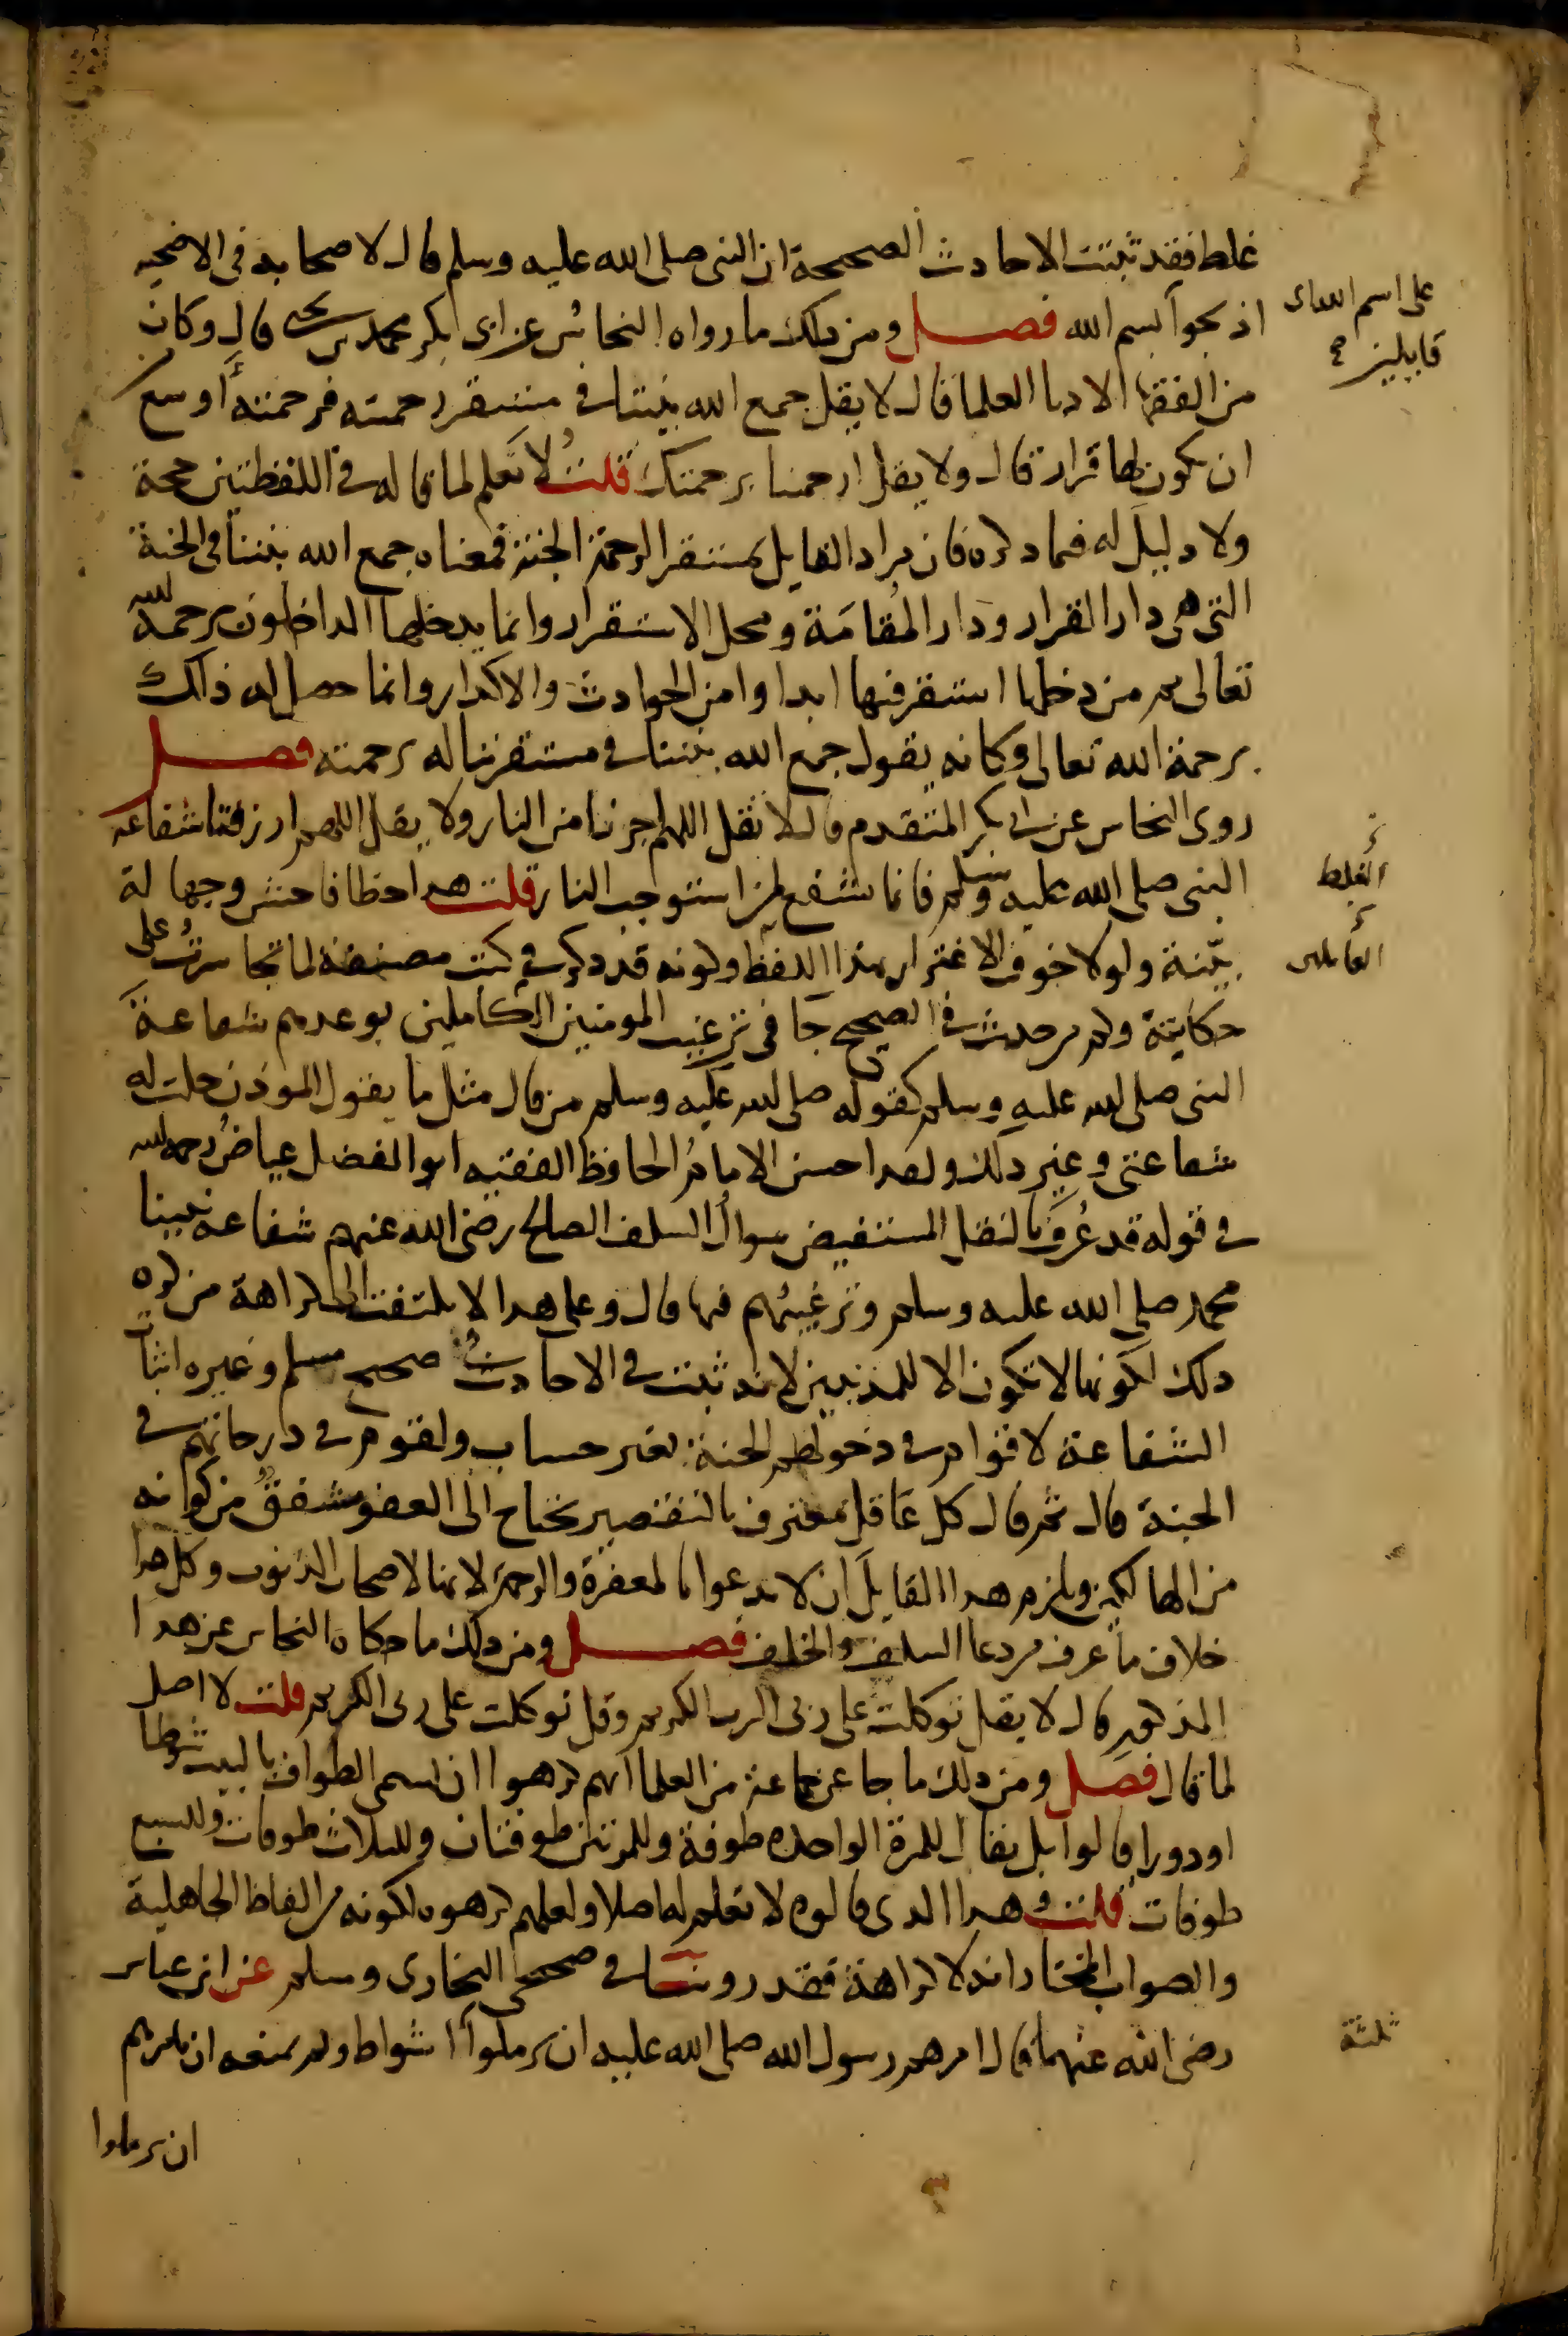 غلط فقد ثبتت الاحاديث الصحيحة ان النبى صلى الله عليه وسلم قال لاصحابه فى الاضحيه
على اسم الله اى
قايلين صح
اذبحوا بسم الله فصل ومن ذلك ما رواه النحاس عن ابى بكر محمد بن يحيى قال وكان
من الفقها الادبا العلما قال لا يقل جمع الله بيننا فى مستقر رحمته فرحمته أوسع
ان يكون لها قرار قال ولا يقل ارحمنا برحمتك قلت لا نعلم لما قاله فى اللفظتين حجة
ولا دليل له فيما ذكره فان مراد القايل بمستقر الرحمة الجنة فمعناه جمع الله بيننا فى الجنة
التى هى دار القرار ودار المُقامَة ومحل الاستقرار وانما يدخلها الداخلون برحمة الله
تعالى ثم من دخلها استقر فيها ابدا وامن الحوادث والاكدار وانما حصل له ذلك
برحمة الله تعالى وكانه يقول جمع الله بيننا فى مستقر نناله برحمته فصل
روى النحاس عن ابى بكر المتقدم قال لا تقل اللهم اجرنا من النار ولا يقل اللهم ارزقنا شفاعه
النبى صلى الله عليه وسلم فانما تشفع لمن استوجب النار قلت هذا خطا فاحش وجهالة
الغلط
بيّنة ولولا خوف الاغترار بهذا اللفظ وكونه قد ذكر فى كتب مصنفة لما تجاسرتُ على
العاملين
حكايته وكم من حديث فى الصحيح جا فى ترغيب المومنين الكاملين بوعدهم شفاعةَ
النبى صلى الله عليه وسلم كقوله صلى الله عليه وسلم من قال مثل ما يقول الموذن حلت له
شفاعتى وغير ذلك ولقد احسن الامامُ الحافظ الفقيه ابو الفضل عياضُ رحمه الله
فى قوله قد عُرفَ بالنقل المستفيض سوالُ السلف الصالح رضى الله عنهم شفاعة نبينا
محمد صلى الله عليه وسلم وترغيبُهم فيها قال وعلى هذا لا يلتفت الى كراهة من كره
ذلك لكونها لا تكون الا للمذنبين لانه ثبت فى الاحاديث صحيح مسلم وغيره اثبات
الشفاعة لاقوام فى دخولهم الجنة بغير حساب ولقوم فى درجاتهم فى
الجنة قال ثم قال كل عاقل معترف بالتقصير يحتاج الى العفو مشفقٌ من كونه
من الهالكين ويلزم هذا القايلَ ان لا يدعوا بالمغفرة والرحمة لانها لاصحاب الذنوب وكل هذا
خلاف ما عرف من دعا السلف والخلف فصل ومن ذلك ما حكاه النحاس عن هذا
المذكور قال لا يقل توكلت على ربى الرب الكريم وقل توكلت على ربى الكريم قلت لا اصل
لما قال فصل ومن ذلك ما جا عن جماعة من العلما انهم كرهوا ان يسمى الطواف بالبيت شوطا
او دورا قالوا بل يقال للمرة الواحدة طوفة وللمرتين طوفتان وللثلاث طوفات وللسبع
طوفات قلت وهذا الذى قالوه لا نعلم له اصلا ولعلهم كرهوه لكونه من الفاظ الجاهلية
والصواب المختار انه لا كراهة فقد روينا فى صحيحى البخارى ومسلم عن ابن عباس
رضى الله عنهما قال امرهم رسول الله صلى الله عليه ان يرملوا اشواط ولم يمنعه ان يامرهم
ثلثة
ان يرملوا